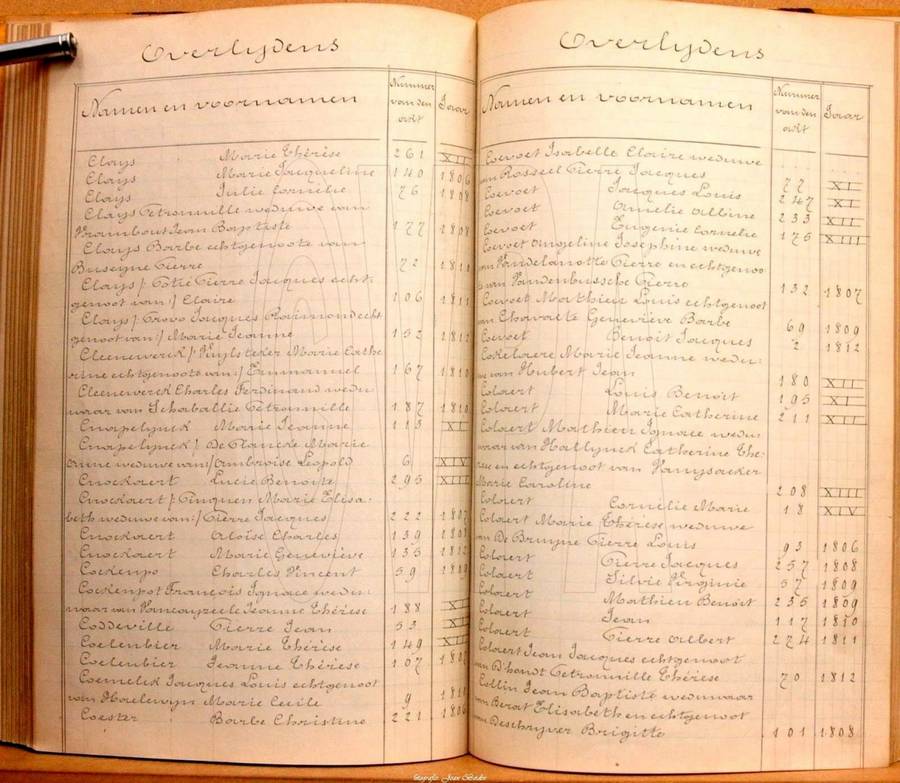 Overlijdens
Namen en voornamen
Nummer van den akt
Jaar
Clays Marie Thérèse 261 XII
Clays Marie Jacqueline 140 1806
Clays Julie Cornelie 76 1808
Clays Petronnille weduwe van
Vrambout Jean Baptiste 177 1808
Clays Barbe echtgenoote van
Buseyne Pierre 72 1811
Clays /: Potié Pierre Jacques echt-
genoot van:/ Claire 106 1811
Clays /: Provo Jacques Raimond echt
genoot van:/ Marie Jeanne 152 1812
Cleenewerck /: Vuylsteker Marie Cathe
rine echtgenoote van:/ Emmanuel 167 1810
Cleenewerck Charles Ferdinand wedu-
naar van Schaballie Petronnille 187 1810
Cnapelynck Marie Jeanne 113 XI
Cnapelynck /: De Plancke Marie
Anne weduwe van:/ Ambroise Leopold 6 XIV
Cnockaert Lucie Benoite 295 XIII
Cnockaert /: Pinquen Marie Elisa-
beth weduwe van:/ Pierre Jacques 222 1807
Cnockaert Aloïse Charles 139
Cnockaert Marie Geneviève 135 1812
Cockenpo Charles Vincent 59 1809
Cockenpot François Ignace wedu-
naar van Vancayzeele Jeanne Thérèse 188 XII
Coddeville Pierre Jean 53 XII
Coelenbier Marie Thérèse 149 XII
Coelenbier Jeanne Thérèse 107 1807
Coemelck Jacques Louis echtgenoot
van Houlewyn Marie Cecile 9 1810
Coester Barbe Christine 221 1806
Overlijdens
Namen en voornamen
Nummer van den akt
Jaar
Coevoet Isabelle Claire weduwe
van Rosseel Pierre Jacques
Coevoet Jacques Louis 77 XI
Coevoet Amelie Albine 247 XI
Coevoet Eugenie Cornelie 233 XII
Coevoet Angeline Josephine weduwe 175 XIII
van Vandelanotte Pierre en echtgenoo
te van Vandenbussche Pierre 132 1807
Coevoet Mathieu Louis echtgenoot
van Chavaete Geneviève Barbe 69 1809
Coevoet Benoit Jacques 2 1812
Cokelaere Marie Jeanne wedu-
we van Hubert Jean 180 XII
Colaert Louis Benoit 195 XI
Colaert Marie Catherine 211 XII
Colaert Mathieu Ignace wedu-
naar van Hatlynck Catherine Thé-
rèse en echtgenoot van Vanysacker
Marie Caroline 208 XIII
Colaert Cornélie Marie 18 XIV
Colaert Marie Thérèse weduwe
van De Bruyne Pierre Louis 93 1806
Colaert Pierre Jacques 257 1808
Colaert Silvie Virginie 57 1809
Colaert Mathieu Benoit 235 1809
Colaert Jean 117 1810
Colaert Pierre Albert 224 1811
Colaert Jean Jacques echtgenoot
van D'hondt Petronnille Thérèse 70 1812
Collin Jean Baptiste weduwnaar
van Berat Elisabeth en echtgenoot
van Deschryver Brigitte 101 1808